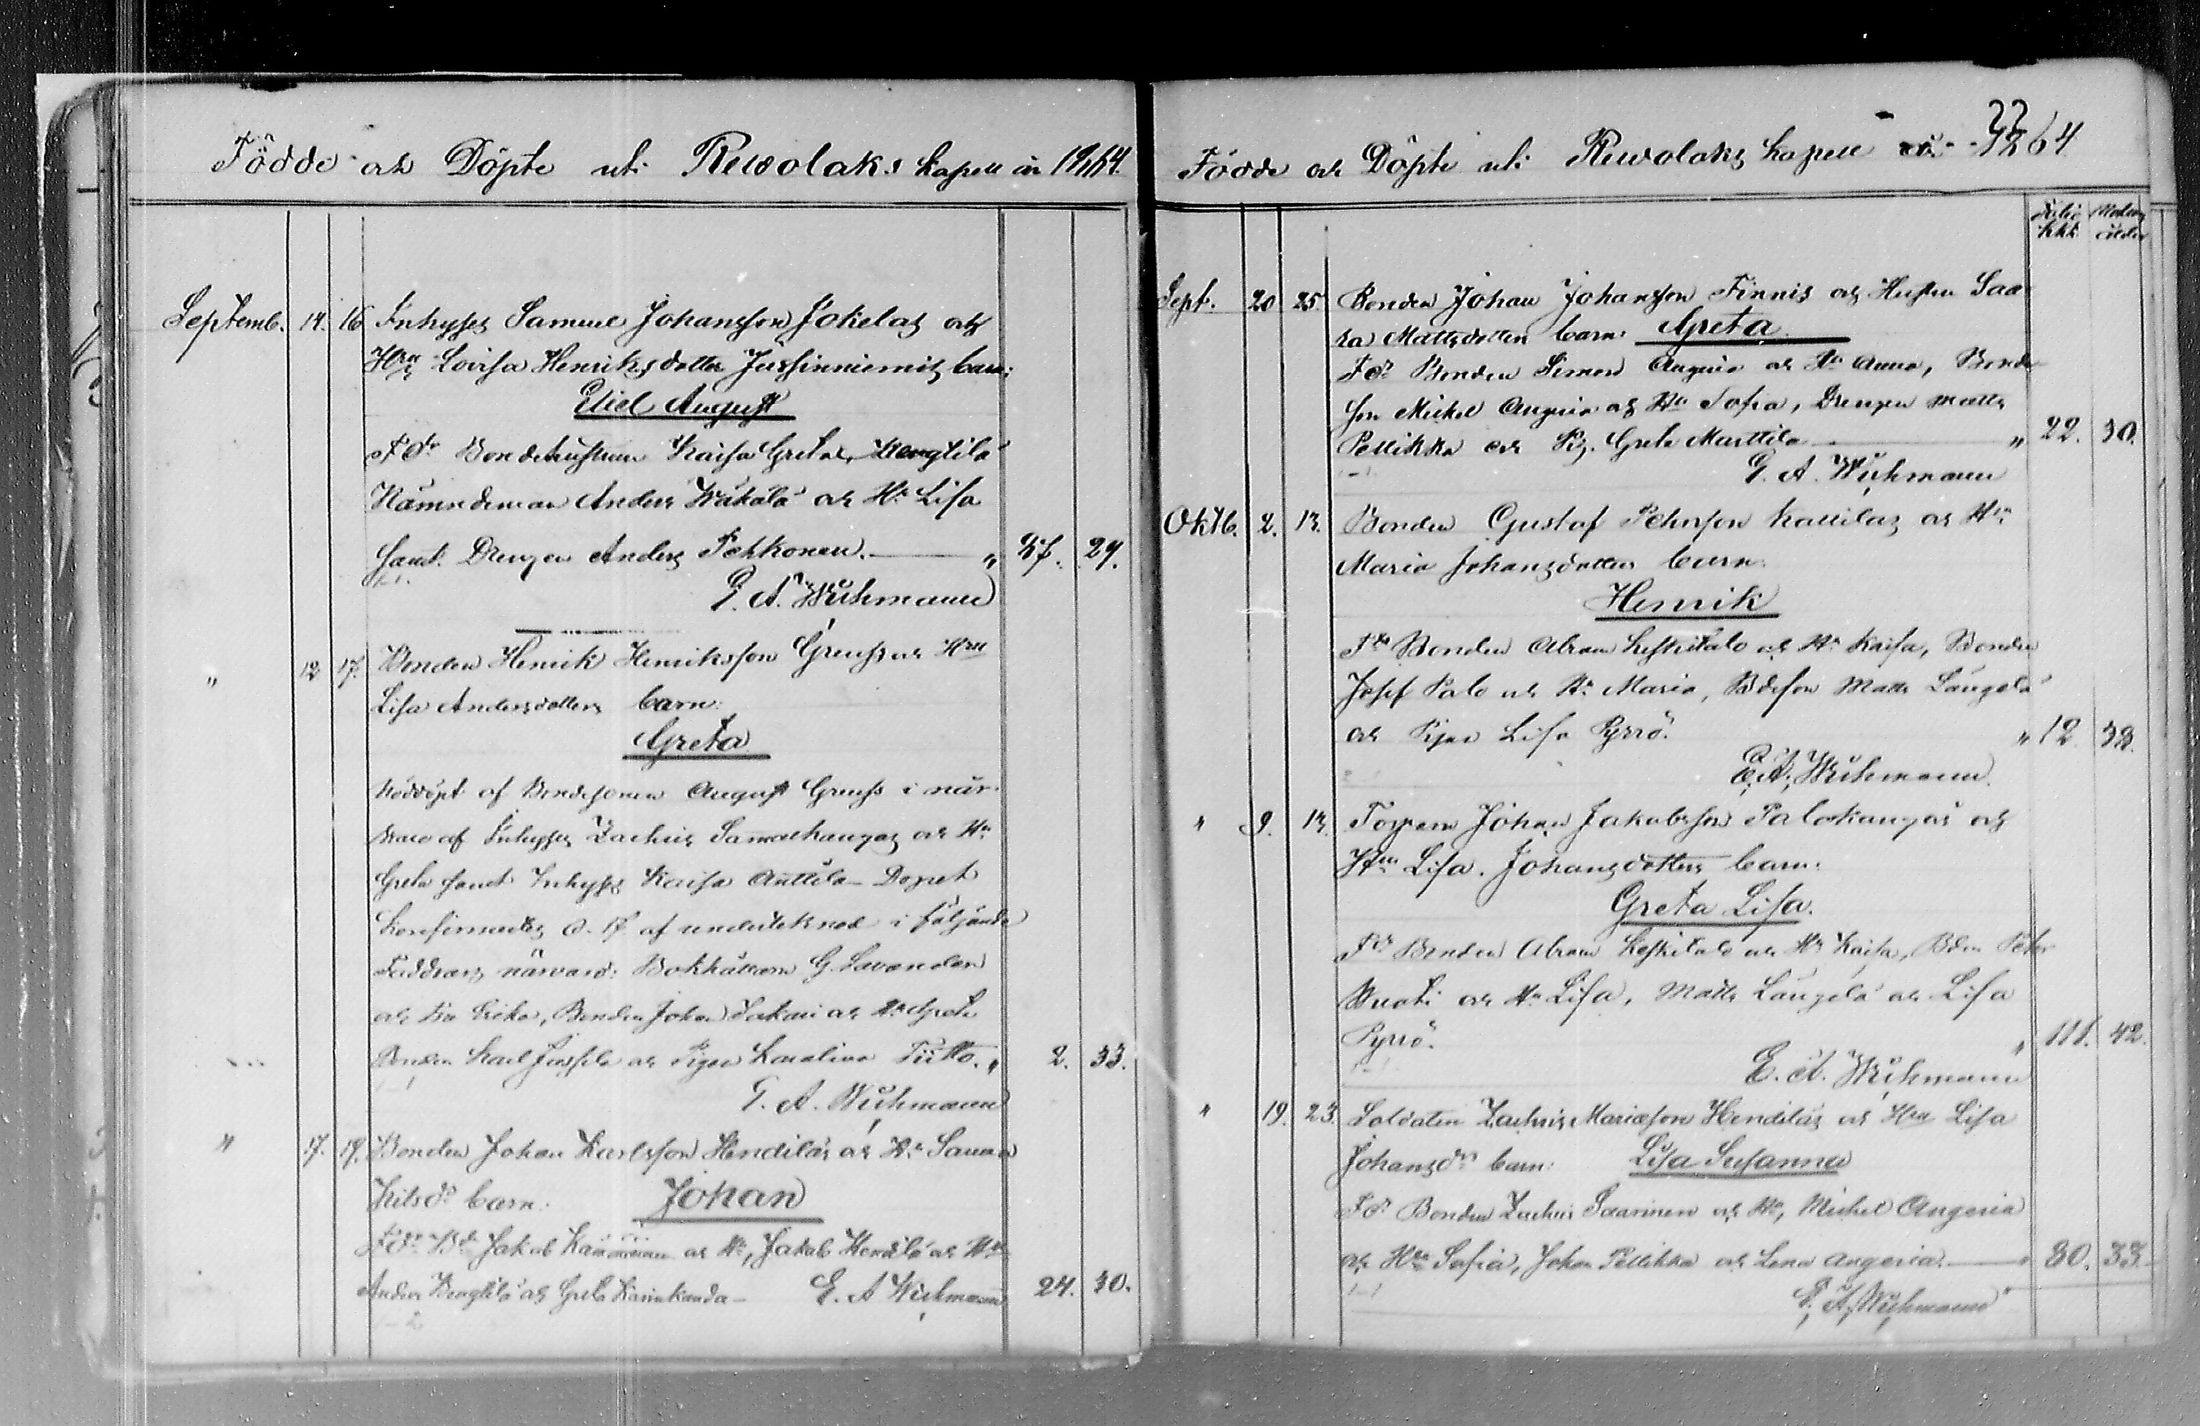 Födde och Döpte uti Rewolaks kapell år 1864.
Septemb. 14. 16 Inhyses Samuel Johansson Jokelas och
Hru Lovisa Henriksdotter Jussinniemis barn:
Eliel August
Fdr Bondehustrun Kaisa Greta Kengtilä
Nämndeman Anders Wäkälä och Hu Lisa
samt Drengen Anders Pehkonen. " 37. 29.
E. A. Wichmann
" 12 17. Bonden Henrik Henriksson Greuss och Hru
Lisa Andersdotters barn:
Greta
Nöddöpt af Bondesonen August Greuss i när-
varo af Inhyses Zachris Samalkangas och Hu
Greta samt Inhyses Kaisa Anttila Dopet
konfirmerades d. 17 af undertecknad i följande
Faddrars närvaro: Bokhållaren G. Lavonder
och Erika, Bonden Johan och Hu Greta
Bonden Karl Jussila och Pigan Karolina Tiitto. " 2. 33.
E. A. Wichmann
" 17. 19. Bonden Johan Karlsson Hendiläs och Hu Sanna
barn: Johan
Fdr Jakob och Hu, Jakob Hendilä och Hu
Anders Kengtilä och Greta E. A. Wichmann 24. 30.
Födde och Döpte uti Rewolaks kapell år 1864
22
Folio Kkb Modrens ålder
Sept. 20 25. Bonden Johan Johansson Finnis och Hustru Saa-
ra Mattsdotters barn: Greta
Fdr Bonden Simon Angeria och Hu Anna, Bonde-
son Mickel Angeria och Hu Sofia, Drengen Matts
Pellikka och Pig. Greta Marttila " 22. 30.
E. A. Wichmann
Oktb. 2. 13. Bonden Gustaf Pehrsson Kattilas och Hu
Maria Johansdotters barn:
Henrik
Fdr Bonden Abram Keskitalo och Hu Kaisa, Bonden
Josef Palo och Hu Maria, Bdeson Matts Laugelä
och Pigan Lisa Pyrrö. " 12 38.
E. A. Wichmann
" 9. 13. Torparen Johan Jakobsson Palokangas och
Hru Lisa Johansdotters barn:
Greta Lisa.
Fdr Bonden Abram Keskitalo och Hu Kaisa, Bden Peter
Wuoti och Hu Lisa, Matts Laugelä och Lisa
Pyrrö. " 111. 42.
E. A. Wichmann
" 19. 23. Soldaten Zachris Mariæson Hendiläs och Hru Lisa
Johansdrs barn: Lisa Susanna
Fdr Bonden Zachris Saarinen och Hu, Mickel Angeria
och Hru Sofia, Johan Pellikka och Lena Angeria. " 30. 33.
E. A. Wichmann